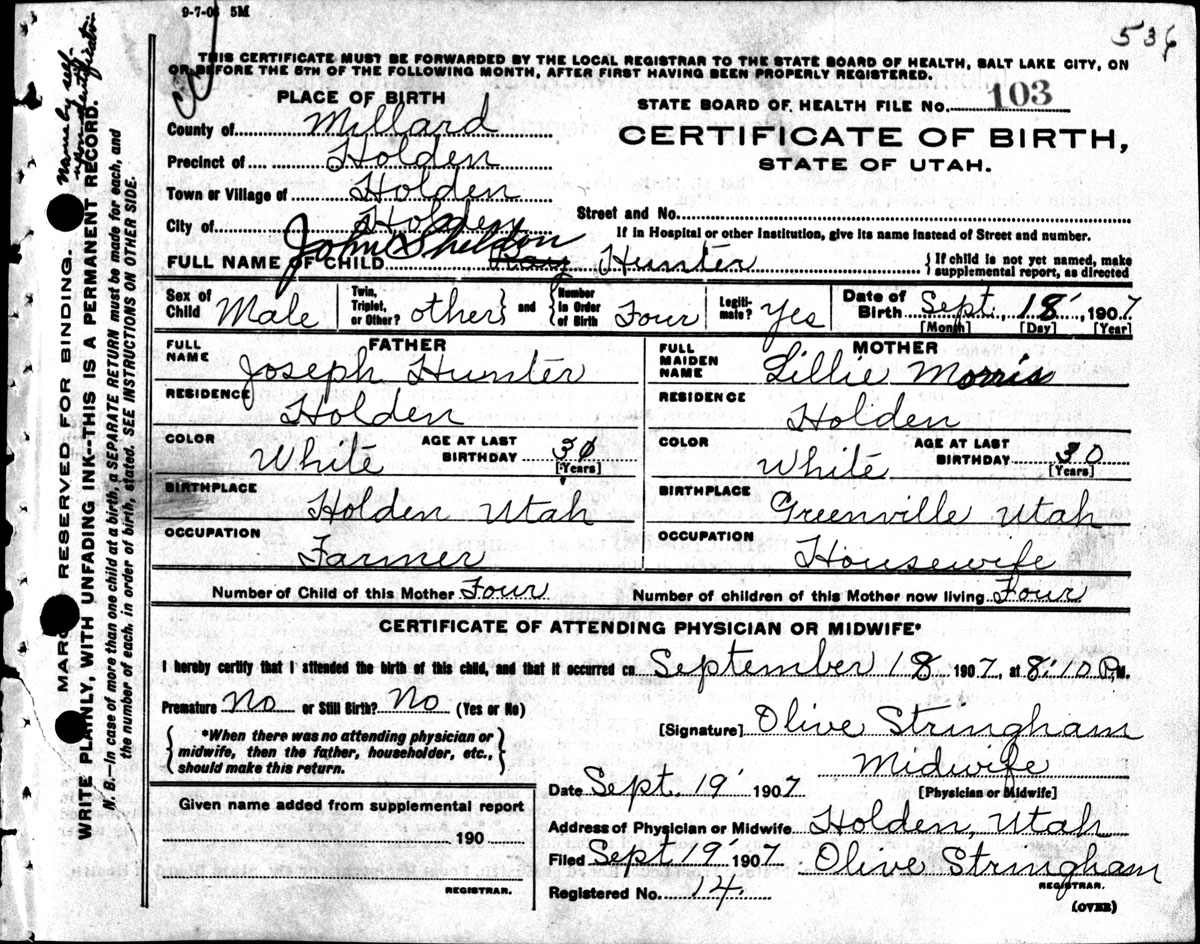 9-7-06 5M
536
THIS CERTIFICATE MUST BE FORWARDED BY THE LOCAL REGISTRAR TO THE STATE BOARD OF HEALTH, SALT LAKE CITY, ON
OR BEFORE THE 5TH OF THE FOLLOWING MONTH, AFTER FIRST HAVING BEEN PROPERLY REGISTERED.
PLACE OF BIRTH
STATE BOARD OF HEALTH FILE No. 103
County of Millard
CERTIFICATE OF BIRTH,
STATE OF UTAH.
Precinct of Holden
Town or Village of Holden
Street and No.
City of Holden
If in Hospital or other Institution, give its name instead of Street and number.
John Sheldon
FULL NAME OF CHILD Ray Hunter
{If child is not yet named, make
supplemental report, as directed
Sex of Child Male
Twin, Triplet, or Other? other} and {Number in Order of Birth Four
Legiti-mate? Yes
Date of Birth Sept. 18, 1907
[Month] [Day] [Year]
FATHER
FULL NAME Joseph Hunter
RESIDENCE Holden
COLOR White AGE AT LAST BIRTHDAY 30
[Years]
BIRTHPLACE Holden Utah
OCCUPATION Farmer
MOTHER
FULL MAIDEN NAME Lillie Morris
RESIDENCE Holden
COLOR White AGE AT LAST BIRTHDAY 30
[Years]
BIRTHPLACE Greenville Utah
OCCUPATION Housewife
Number of Child of this Mother Four Number of children of this Mother now living Four
CERTIFICATE OF ATTENDING PHYSICIAN OR MIDWIFE*
I hereby certify that I attended the birth of this child, and that it occurred on September 18 1907, at 8:10 P.M.
Premature No or Still Birth? No (Yes or No)
{*When there was no attending physician or
midwife, then the father, householder, etc.,
should make this return.}
[Signature] Olive Stringham
Midwife
[Physician or Midwife]
Date Sept. 19 1907
Address of Physician or Midwife Holden, Utah
Filed Sept 19 1907 Olive Stringham
REGISTRAR.
Registered No. 14.
(OVER)
Given name added from supplemental report
190
REGISTRAR.
MARGIN RESERVED FOR BINDING.
Name by self
WRITE PLAINLY, WITH UNFADING INK--THIS IS A PERMANENT RECORD.
N. B.--In case of more than one child at a birth, a SEPARATE RETURN must be made for each, and
the number of each, in order of birth, stated. SEE INSTRUCTIONS ON OTHER SIDE.